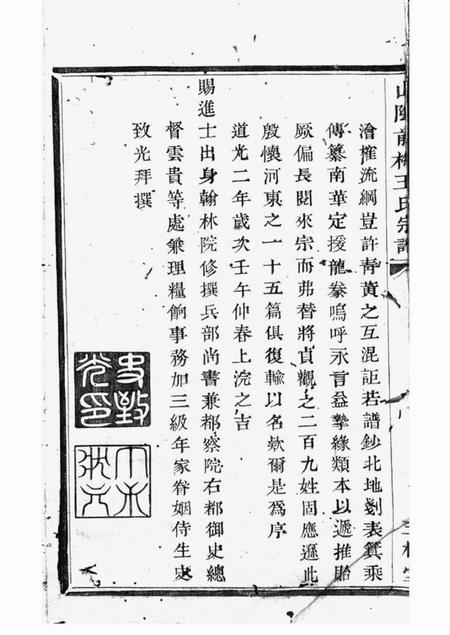 山陰前梅王氏宗譜
澮榷流綱豈許靑黃之互混詎若譜鈔北地剗表箕乘
傳纂南華定援龍拳嗚呼永言益摯緣類本以遞推貽
厥偏長閱來宗而弗替將貞觀之二百九姓固應遜此
殷懷河東之一十五篇俱復輸以名欵爾是爲序
道光二年歲次壬午仲春上浣之吉
賜進士出身翰林院修撰兵部尚書兼都察院右都御史總
督雲貴等處兼理糧餉事務加三級年家眷姻侍生史
致光拜撰
史致光印